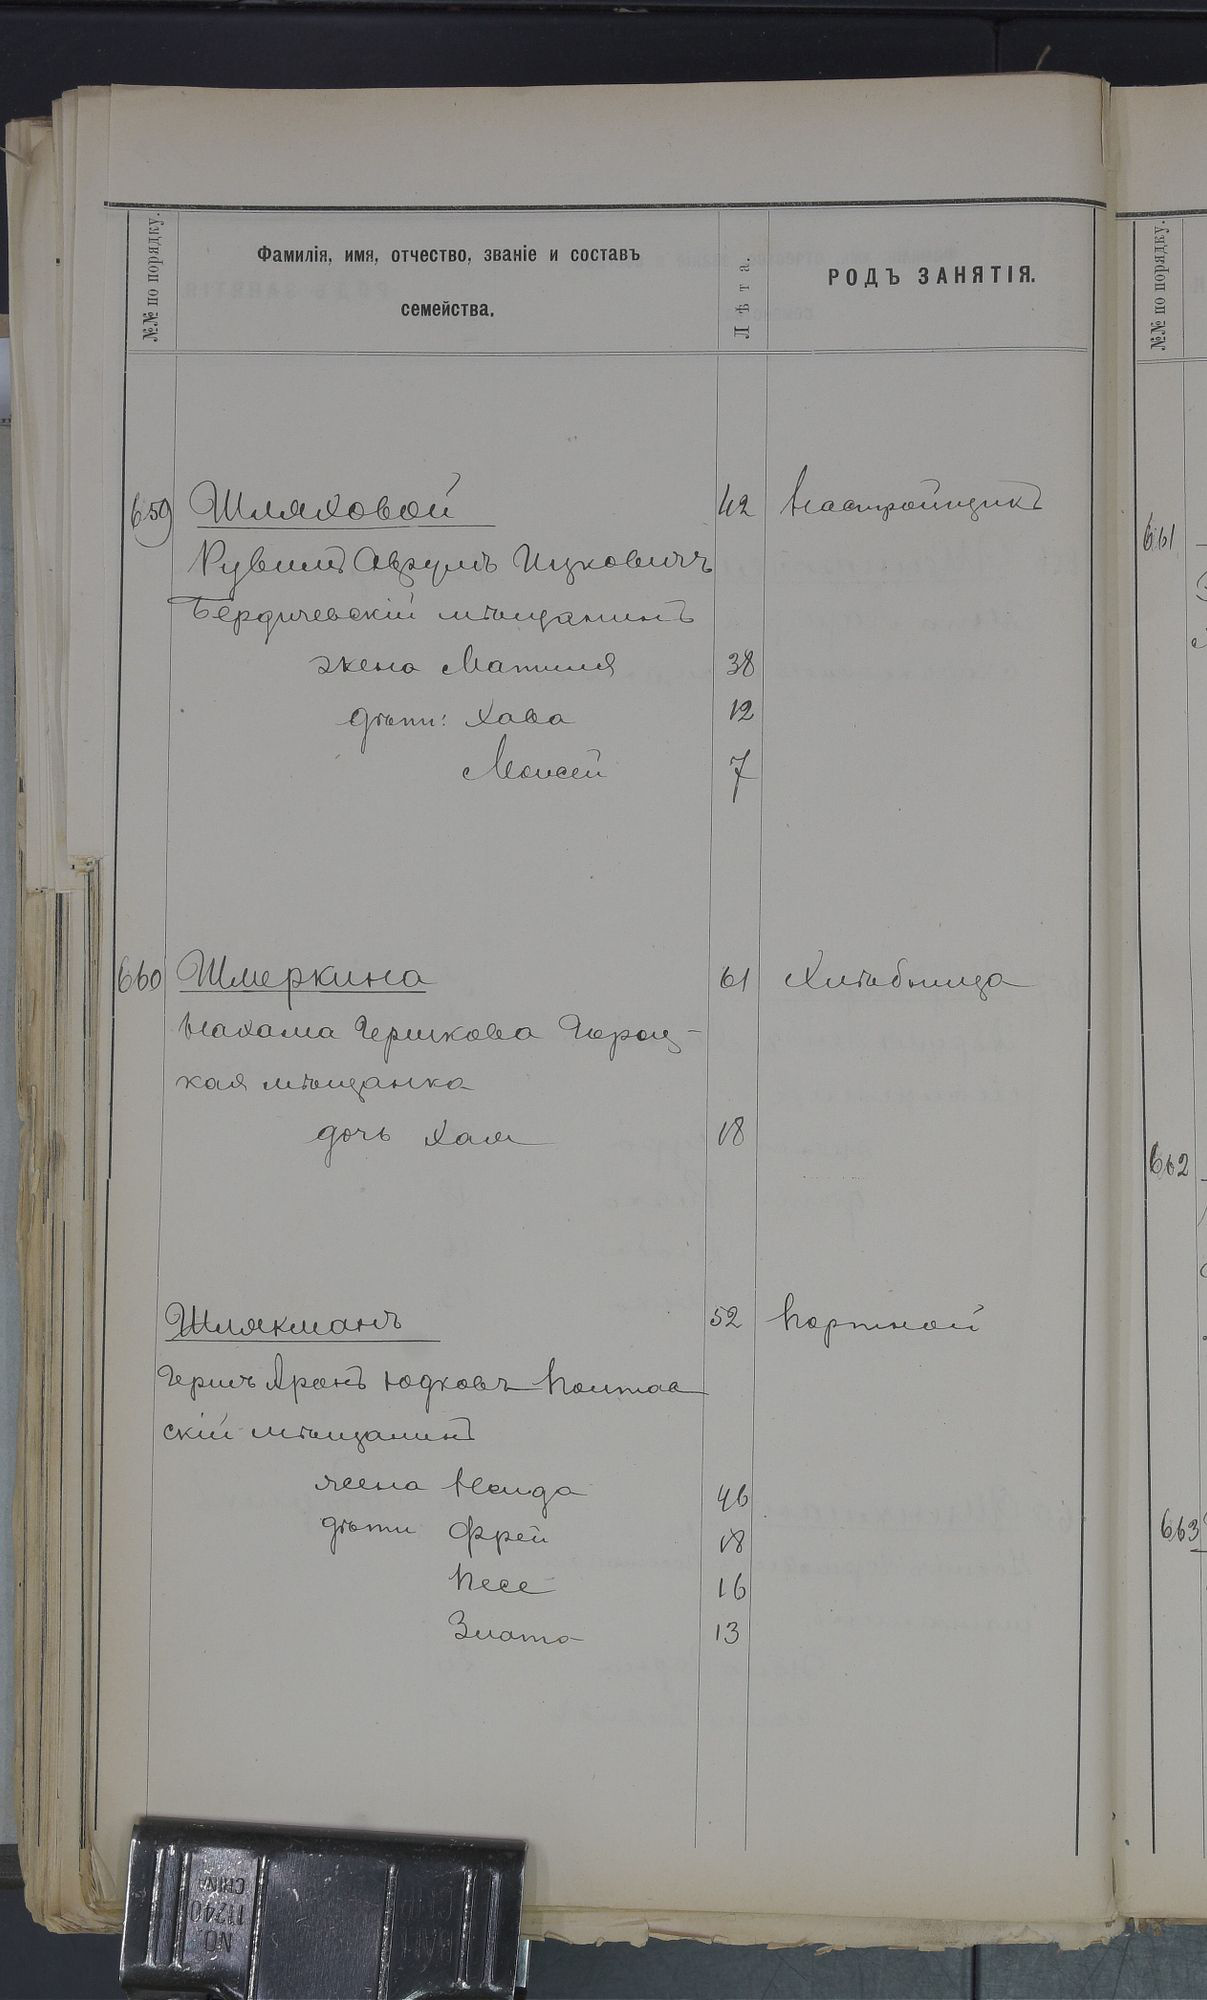 №№ по порядку.
Фамилія, имя, отчество, званіе и составъ
семейства.
Лѣта.
РОДЪ ЗАНЯТІЯ.
№№ по порядку.
659 Шляховой 42 Настройщикъ
Рувинъ Аврумъ Ицковичъ
Бердичевскій мѣщанинъ
жена Матиля 38
дѣти: Хава 12
Моисей 7
660 Шмеркина 61 Хлѣбница
Нахама Гершкова Город-
кая мѣщанка
дочь Хая 18
Шлякманъ 52 Портной
Гершъ Аронъ Юдковъ Полтав
скій мѣщанинъ
жена 46
дѣти Фрей 18
Песе 16
Злата 13
661
662
663
NO.
11240
CHINA